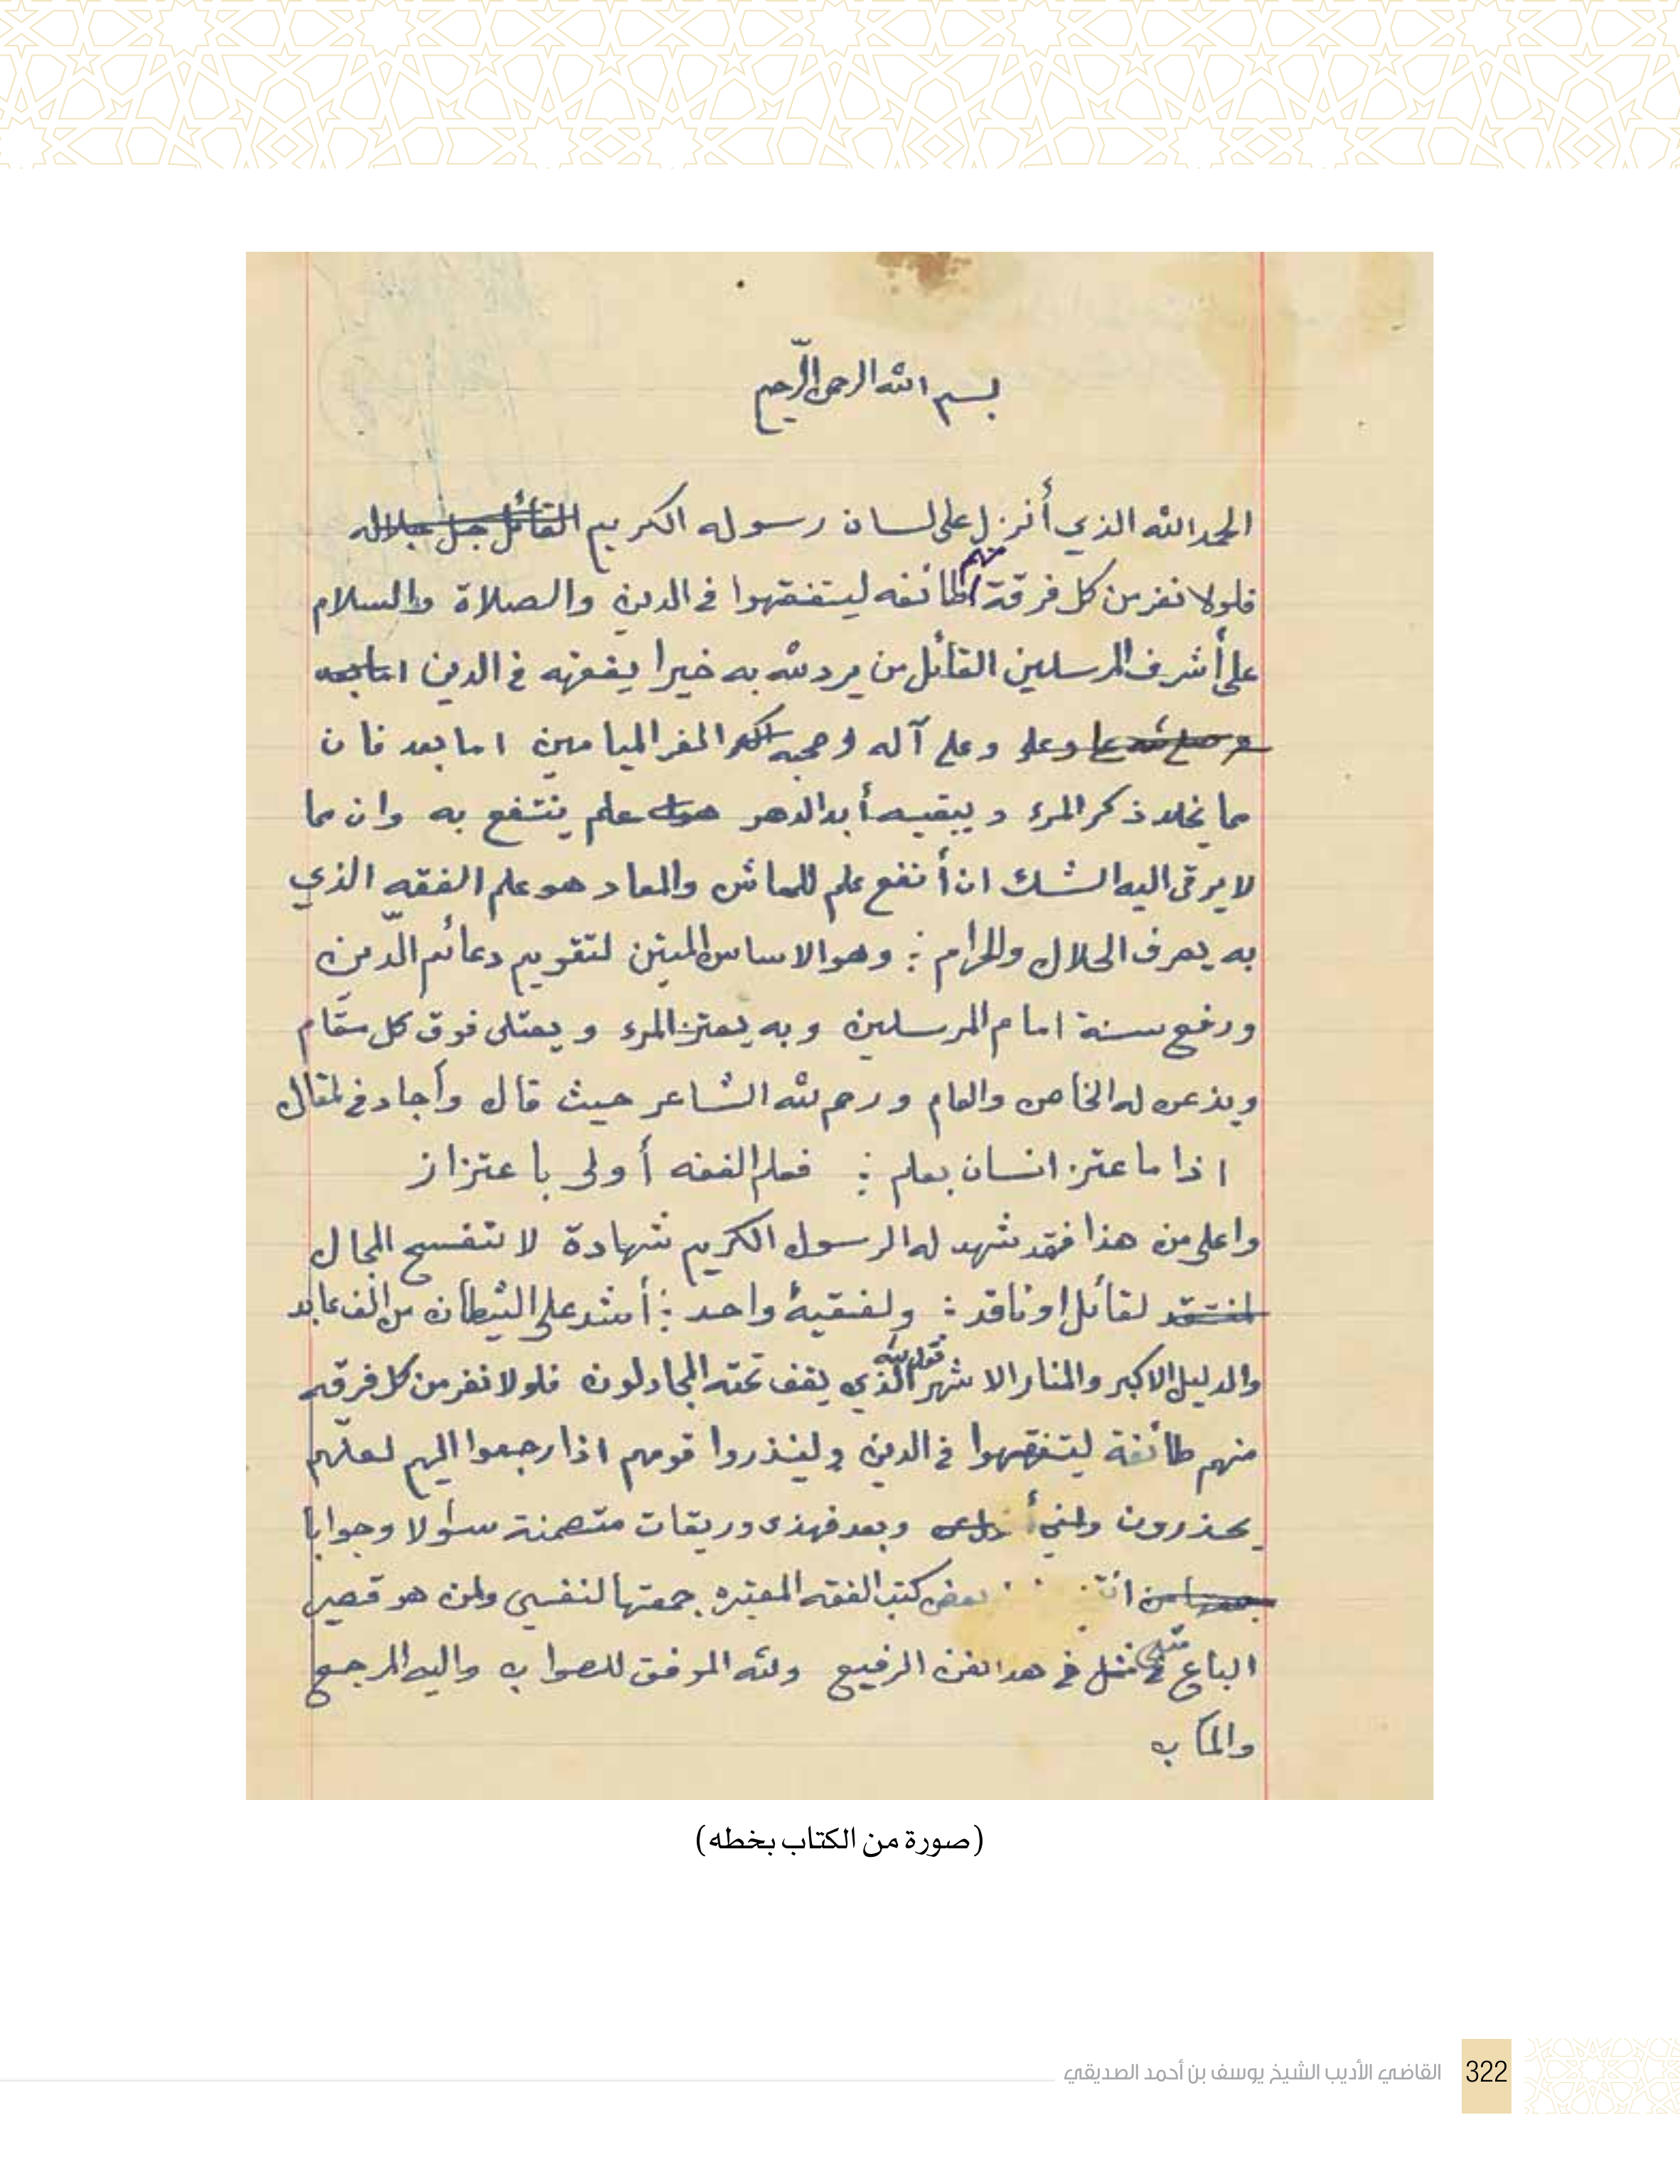 بسم الله الرحمن الرّحيم
الحمد لله الذي أنزل على لسان رسوله الكريم القائل جل جلاله
فلولا نفر من كل فرقة منهم طائفه ليتفقهوا في الدين والصلاة والسلام
على أشرف المرسلين القائل من يرد الله به خيرا يفقهه في الدين اما بعد
وعلى وعلى آله وصحبه الغر الميامين اما بعد فان
مما يخلد ذكر المرء ويبقيه أبد الدهر هو علم ينتفع به وان مما
لا يرقى اليه الشك ان أنفع علم للمعاش والمعاد هو علم الفقه الذي
به يعرف الحلال والحرام : وهو الاساس المتين لتقويم دعائم الدّين
ورفع سنة امام المرسلين وبه يعتز المرء ويعتلى فوق كل مقام
ويذعن له الخاص والعام ورحم الله الشاعر حيث قال وأجاد في المقال
اذا ما عتز انسان بعلم : فعلم الفقه أولى با عتزاز
واعلى من هذا فقد شهد له الرسول الكريم شهادة لا تفسح المجال
لمنتقد لقائل او ناقد : ولفقيه واحد : أشد على الشيطان من الف عابد
والدليل الاكبر والمنار الاشهر قول الله الذي يقف تحته المجادلون فلولا نفر من كل فرقه
منهم طائفة ليتفقهوا في الدين ولينذروا قومهم اذا رجعوا اليهم لعلّهم
يحذرون وبعد فهذى وريقات متضمنة سؤلا وجوابا
بعض كتب الفقه المعتبره جمعتها لنفسي ولمن هو قصير
الباع مثلي في مثل في هذا الفن الرفيع والله الموفق للصواب واليه المرجع
والمآب
(صورة من الكتاب بخطه)
القاضي الأديب الشيخ يوسف بن أحمد الصديقي 322